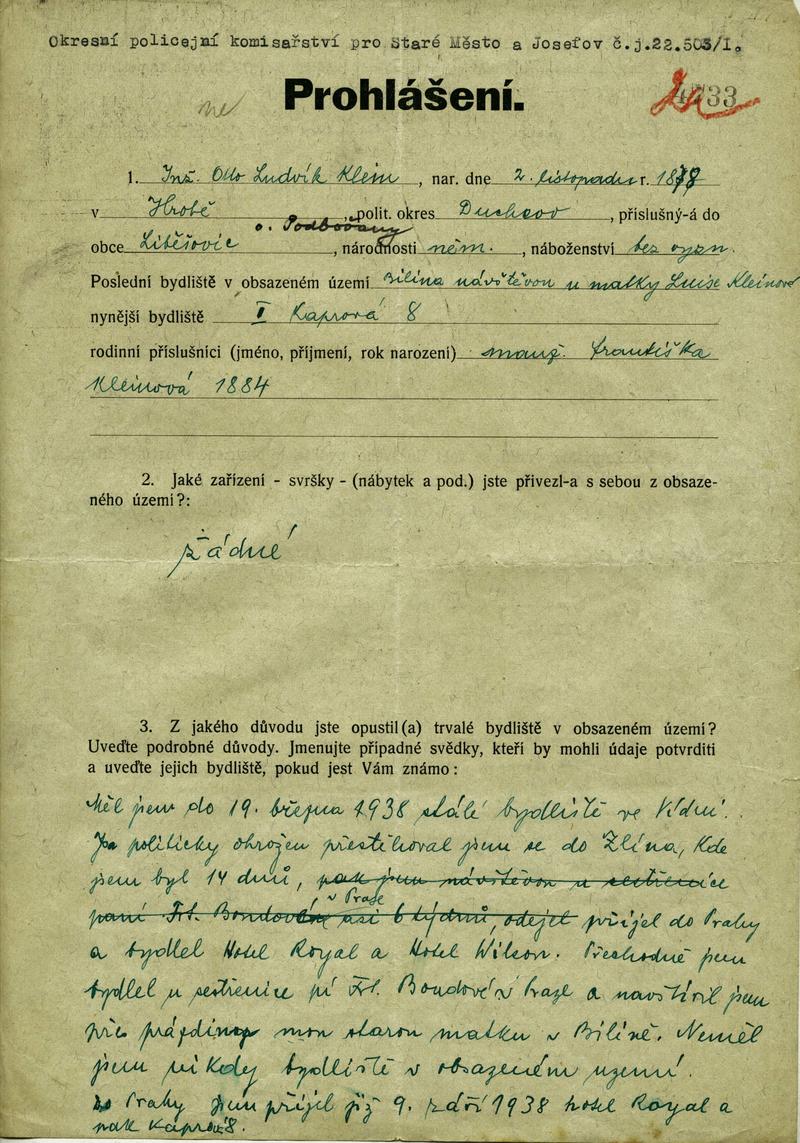 Okresní policejní komisařství pro Staré Město a Josefov č.j.22.503/I.
ne
Prohlášení.
33
1. Inž. Otto Ludvík Klein, nar. dne 2. listopadu r. 1878
v Hrobě, polit. okres Duchcov, příslušný-á do
o. Podbořany
obce Liběšovic, národnosti něm., náboženství bez vyzn.
Poslední bydliště v obsazeném území Bilina návštěvou u matky Luise Kleinové
nynější bydliště I Kaprová 8
rodinní příslušníci (jméno, příjmení, rok narození) manž. Františka
Kleinová 1884
2. Jaké zařízení - svršky - (nábytek a pod.) jste přivezl-a s sebou z obsaze-
ného území?:
žádné
3. Z jakého důvodu jste opustil(a) trvalé bydliště v obsazeném území?
Uveďte podrobné důvody. Jmenujte případné svědky, kteří by mohli údaje potvrditi
a uveďte jejich bydliště, pokud jest Vám známo:
Měl jsem do 19. března 1938 stálé bydliště ve Vídni.
politicky ohrožen přestěhoval jsem se do Zlína, kde
jsem byl 14 dnů, pak jsem návštěvou u sestřenice
v Praze
paní Frt. Bondové asi 6 týdnů, odejel přijel do Prahy
a bydlel Hotel Royal a Hotel Wilson. Přechodně jsem
bydlel u sestřenice pí Frt. Bondové v Praze a navštívil jsem
mou starou matku v Bilině. Neměl
jsem nikdy bydliště v obsazeném uzemí.
Prahy jsem přijel již 9. září 1938 hotel Royal a
pak Kaprová 8.